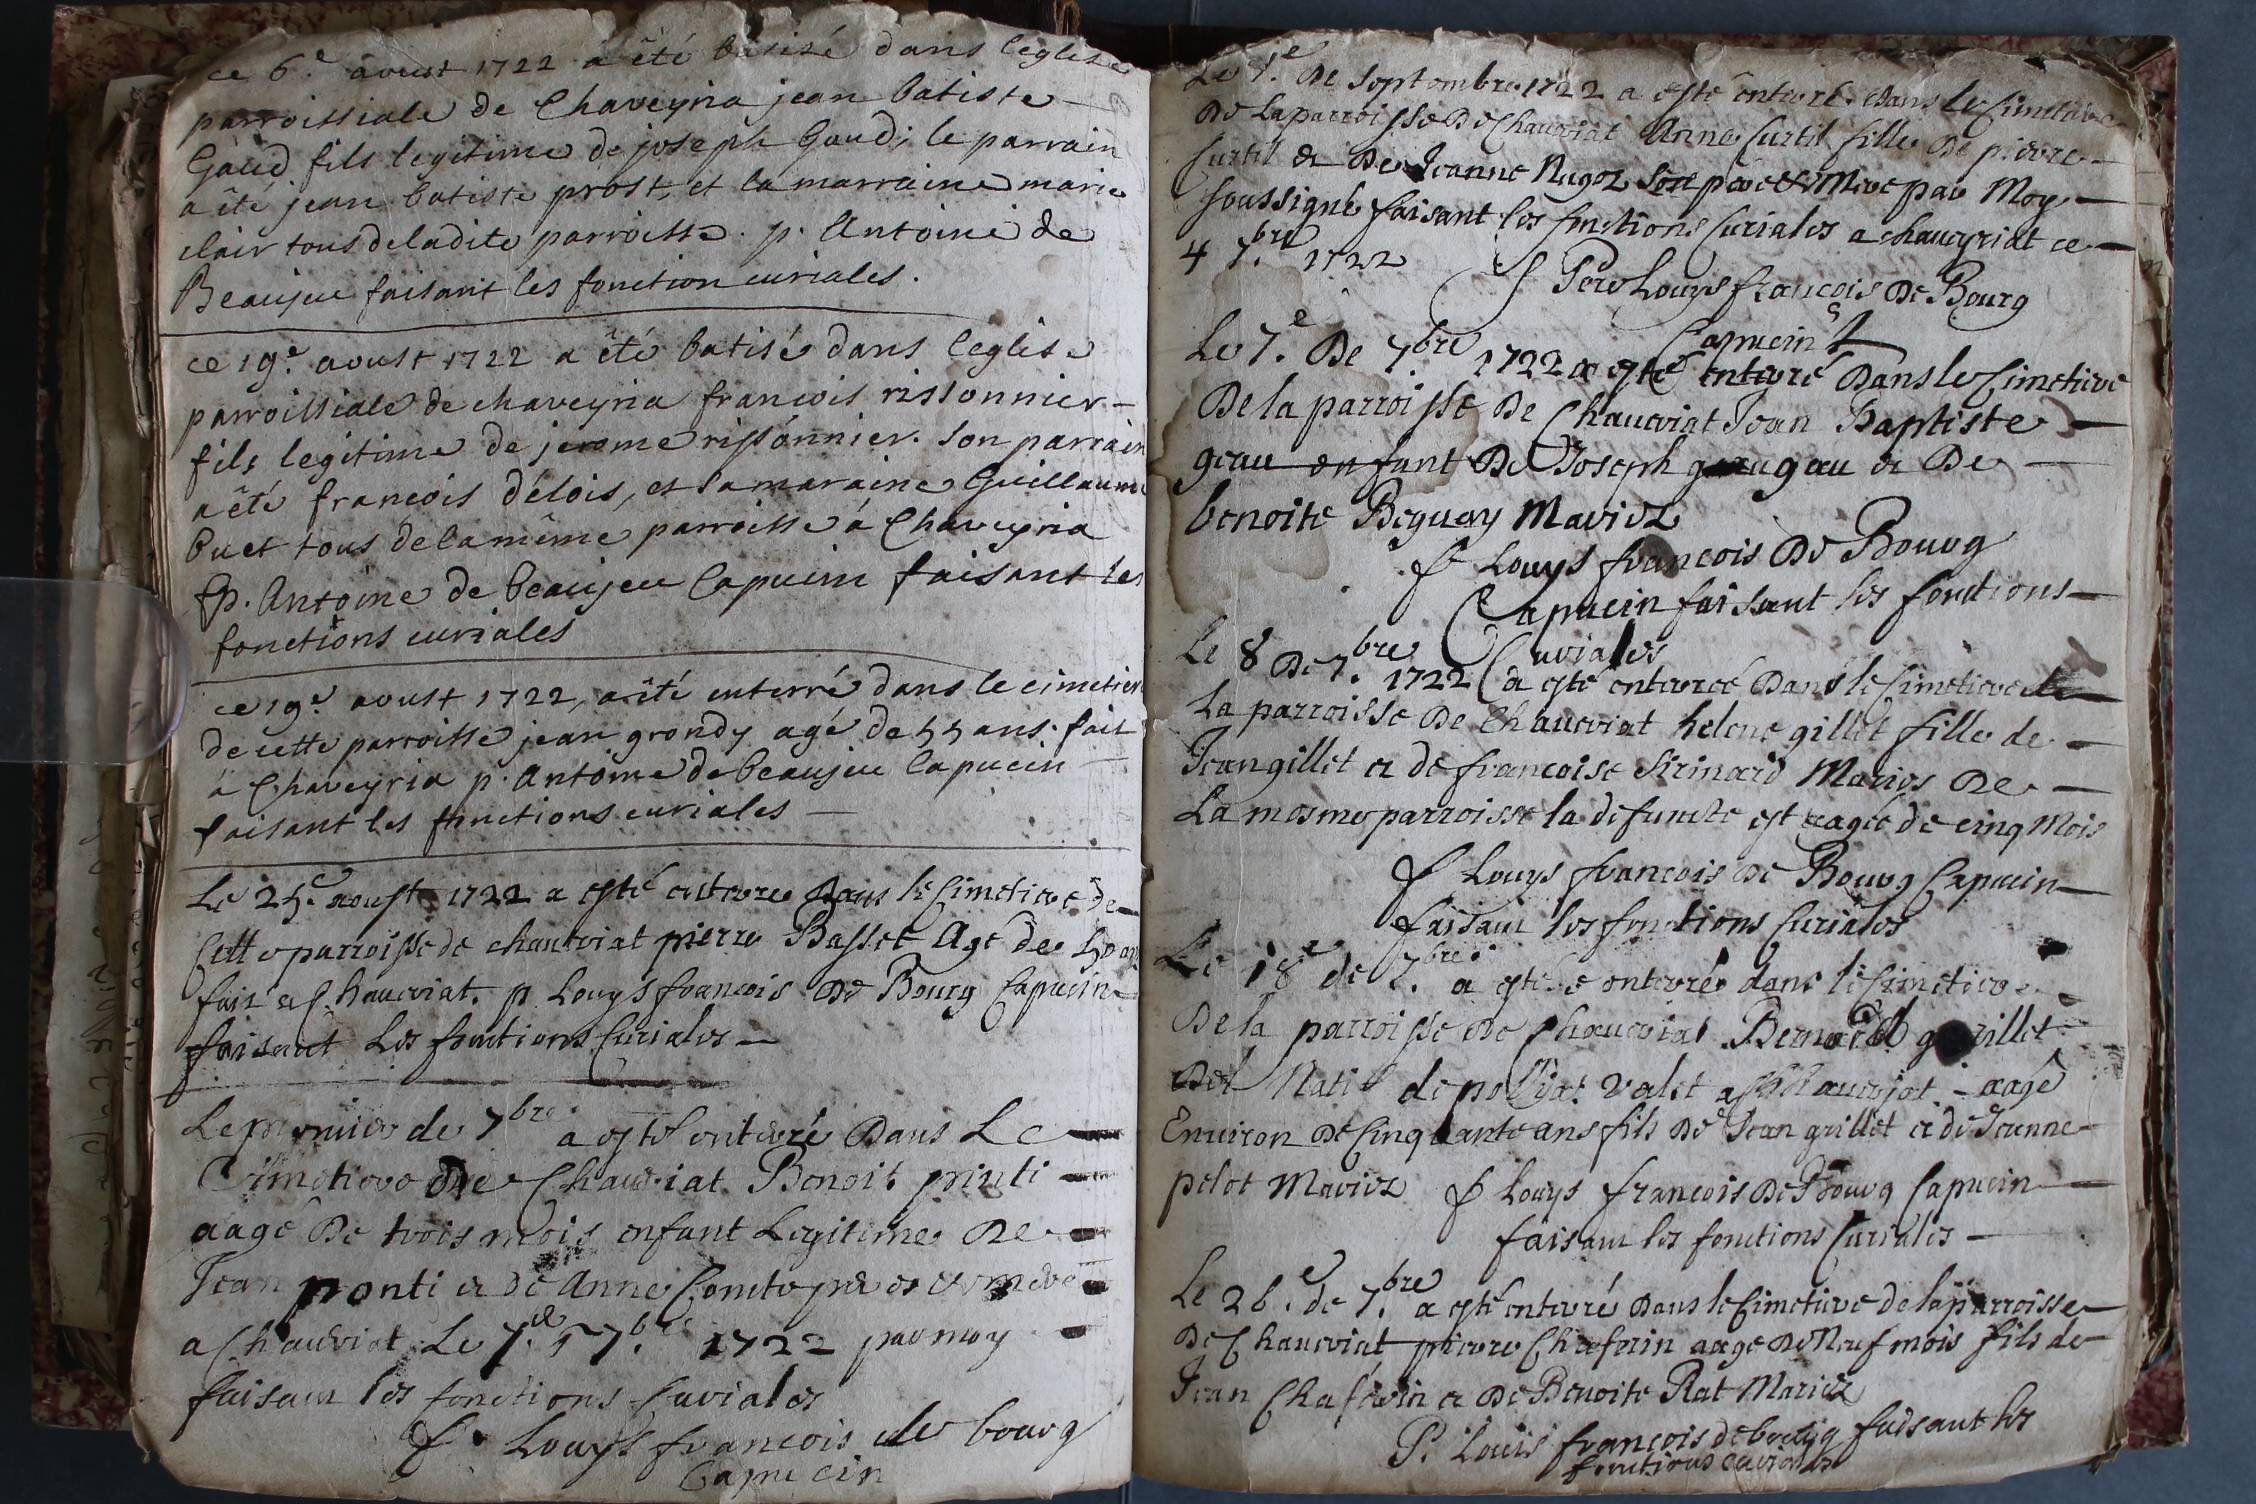 ce 6.e avoust 1722 a êté batisé dans l'eglise
parroissiale de Chaveyria jean batiste
Gaud fils legitime de joseph Gaud; le parrain
a êté jean batiste prost, et la marraine marie
clair tous de ladite parroisse. p. Antoine de
Beaujeu faisant les fonction curiales.
ce 19.e avoust 1722 a êté batisé dans l'eglise
parroissiale de chaveyria francois rissonnier
fils legitime de jerome rissonnier. son parrain
a êté francois délois, et sa maraine Guillaume
buet tous de la même parroisse á Chaveyria
fp. Antoine de beaujeu Capucin faisant les
fonctions curiales
ce 19.e avoust 1722, a êté enterré dans le cimetier
de cette parroisse jean grondy agé de 55 ans. fait
á Chaveyria p. Antoine de beaujeu Capucin
faisant les fonctions curiales
Le 25.e aoust 1722 a esté enterre Dans le Cimetiere de
Cette parroisse de chaveriat pierre Basset Age de 50 ans
fait a Chaveriat. p. Louys francois De Bourg Capucin
faisant Les fonctions Curiales
Le premier de 7bre a esté enterré Dans Le
Cimetiere De Chaveriat Benoit ponti
aagé De trois mois enfant Legitime De
Jean ponti et de Anne Comte peres et mere
a Chaveriat Le 7bre 1722 par moy
faisant les fonctions Curiales
f. Louys francois de bourg
Capucin
Le 1.e De Septembre 1722 a esté enterré Dans le Cimetiere
De la parroisse De Chaveriat Anne Curtil fille De pierre
Curtil et De Jeanne Nugoz son pere et Mere par Moy
soussigné faisant les fonctions Curiales a chaveyriat ce
4 7.bre 1722
f Pere Louys francois De Bourg
Capucin
Le 7.e De 7.bre 1722 a esté enterré Dans le Cimetiere
De la parroisse De Chaveriat Jean Baptiste
geau enfant De Joseph geau et De
benoite Beguay Mariez
f Louys francois De Bourg
Capucin faisant les fonctions
Curiales
Le 8 De 7.bre 1722 a esté enterreé Dans le Cimetiere de
La parroisse De Chaveriat helene gillet fille de
Jean gillet et de francoise Sirinard Mariés De
La mesme parroisse la defuncte est aagée de cinq Mois
f Louys francois De Bourg Capucin
faisant les fonctions Curiales
Le 18.e de 7.bre a esté enterré dans le Cimetiere
De la parroisse De Chaveriat Bernard grillet
Natif de polliat valet a Chaveriat aagé
Environ De Cinquante ans fils De Jean grillet et de Jeanne
pelot Mariez f Louys francois De Bourg Capucin
faisant les fonctions Curiales
Le 26.e de 7.bre a esté enterré Dans le Cimetiere de la parroisse
De Chaveriat pierre Chaferin aage De Neuf mois fils de
Jean Chaferin et De Benoite Rat Mariez
P. Louis françois de bourg faisant les
fonctions curiales